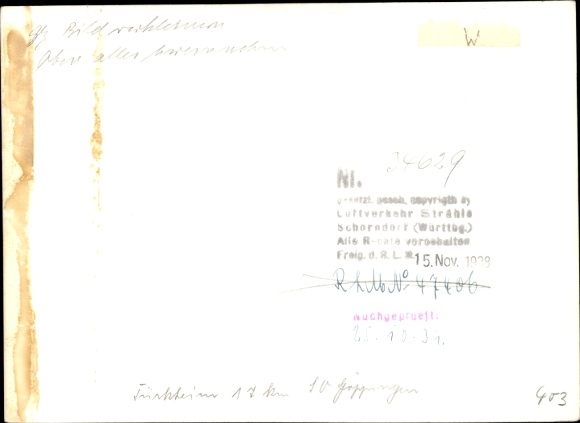 Bild verkleinern
Oben alles
W
Nr. 34629
gesetzl. gesch. copyrigth by
Luftverkehr Strähle
Schorndorf (Württbg.)
Alle Rechte vorbehalten
Freig. d. R. L. M. 15. Nov. 1938
R L M No 47406
Nachgeprüft:
Türkheim 17 km SO Göppingen
403